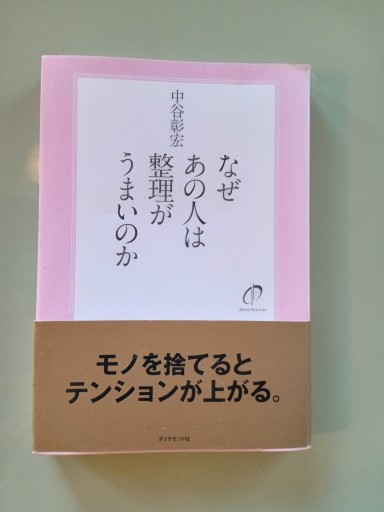 なぜ
あの人は
整理が
うまいのか
中谷彰宏
モノを捨てると
テンションが上がる。
ダイヤモンド社